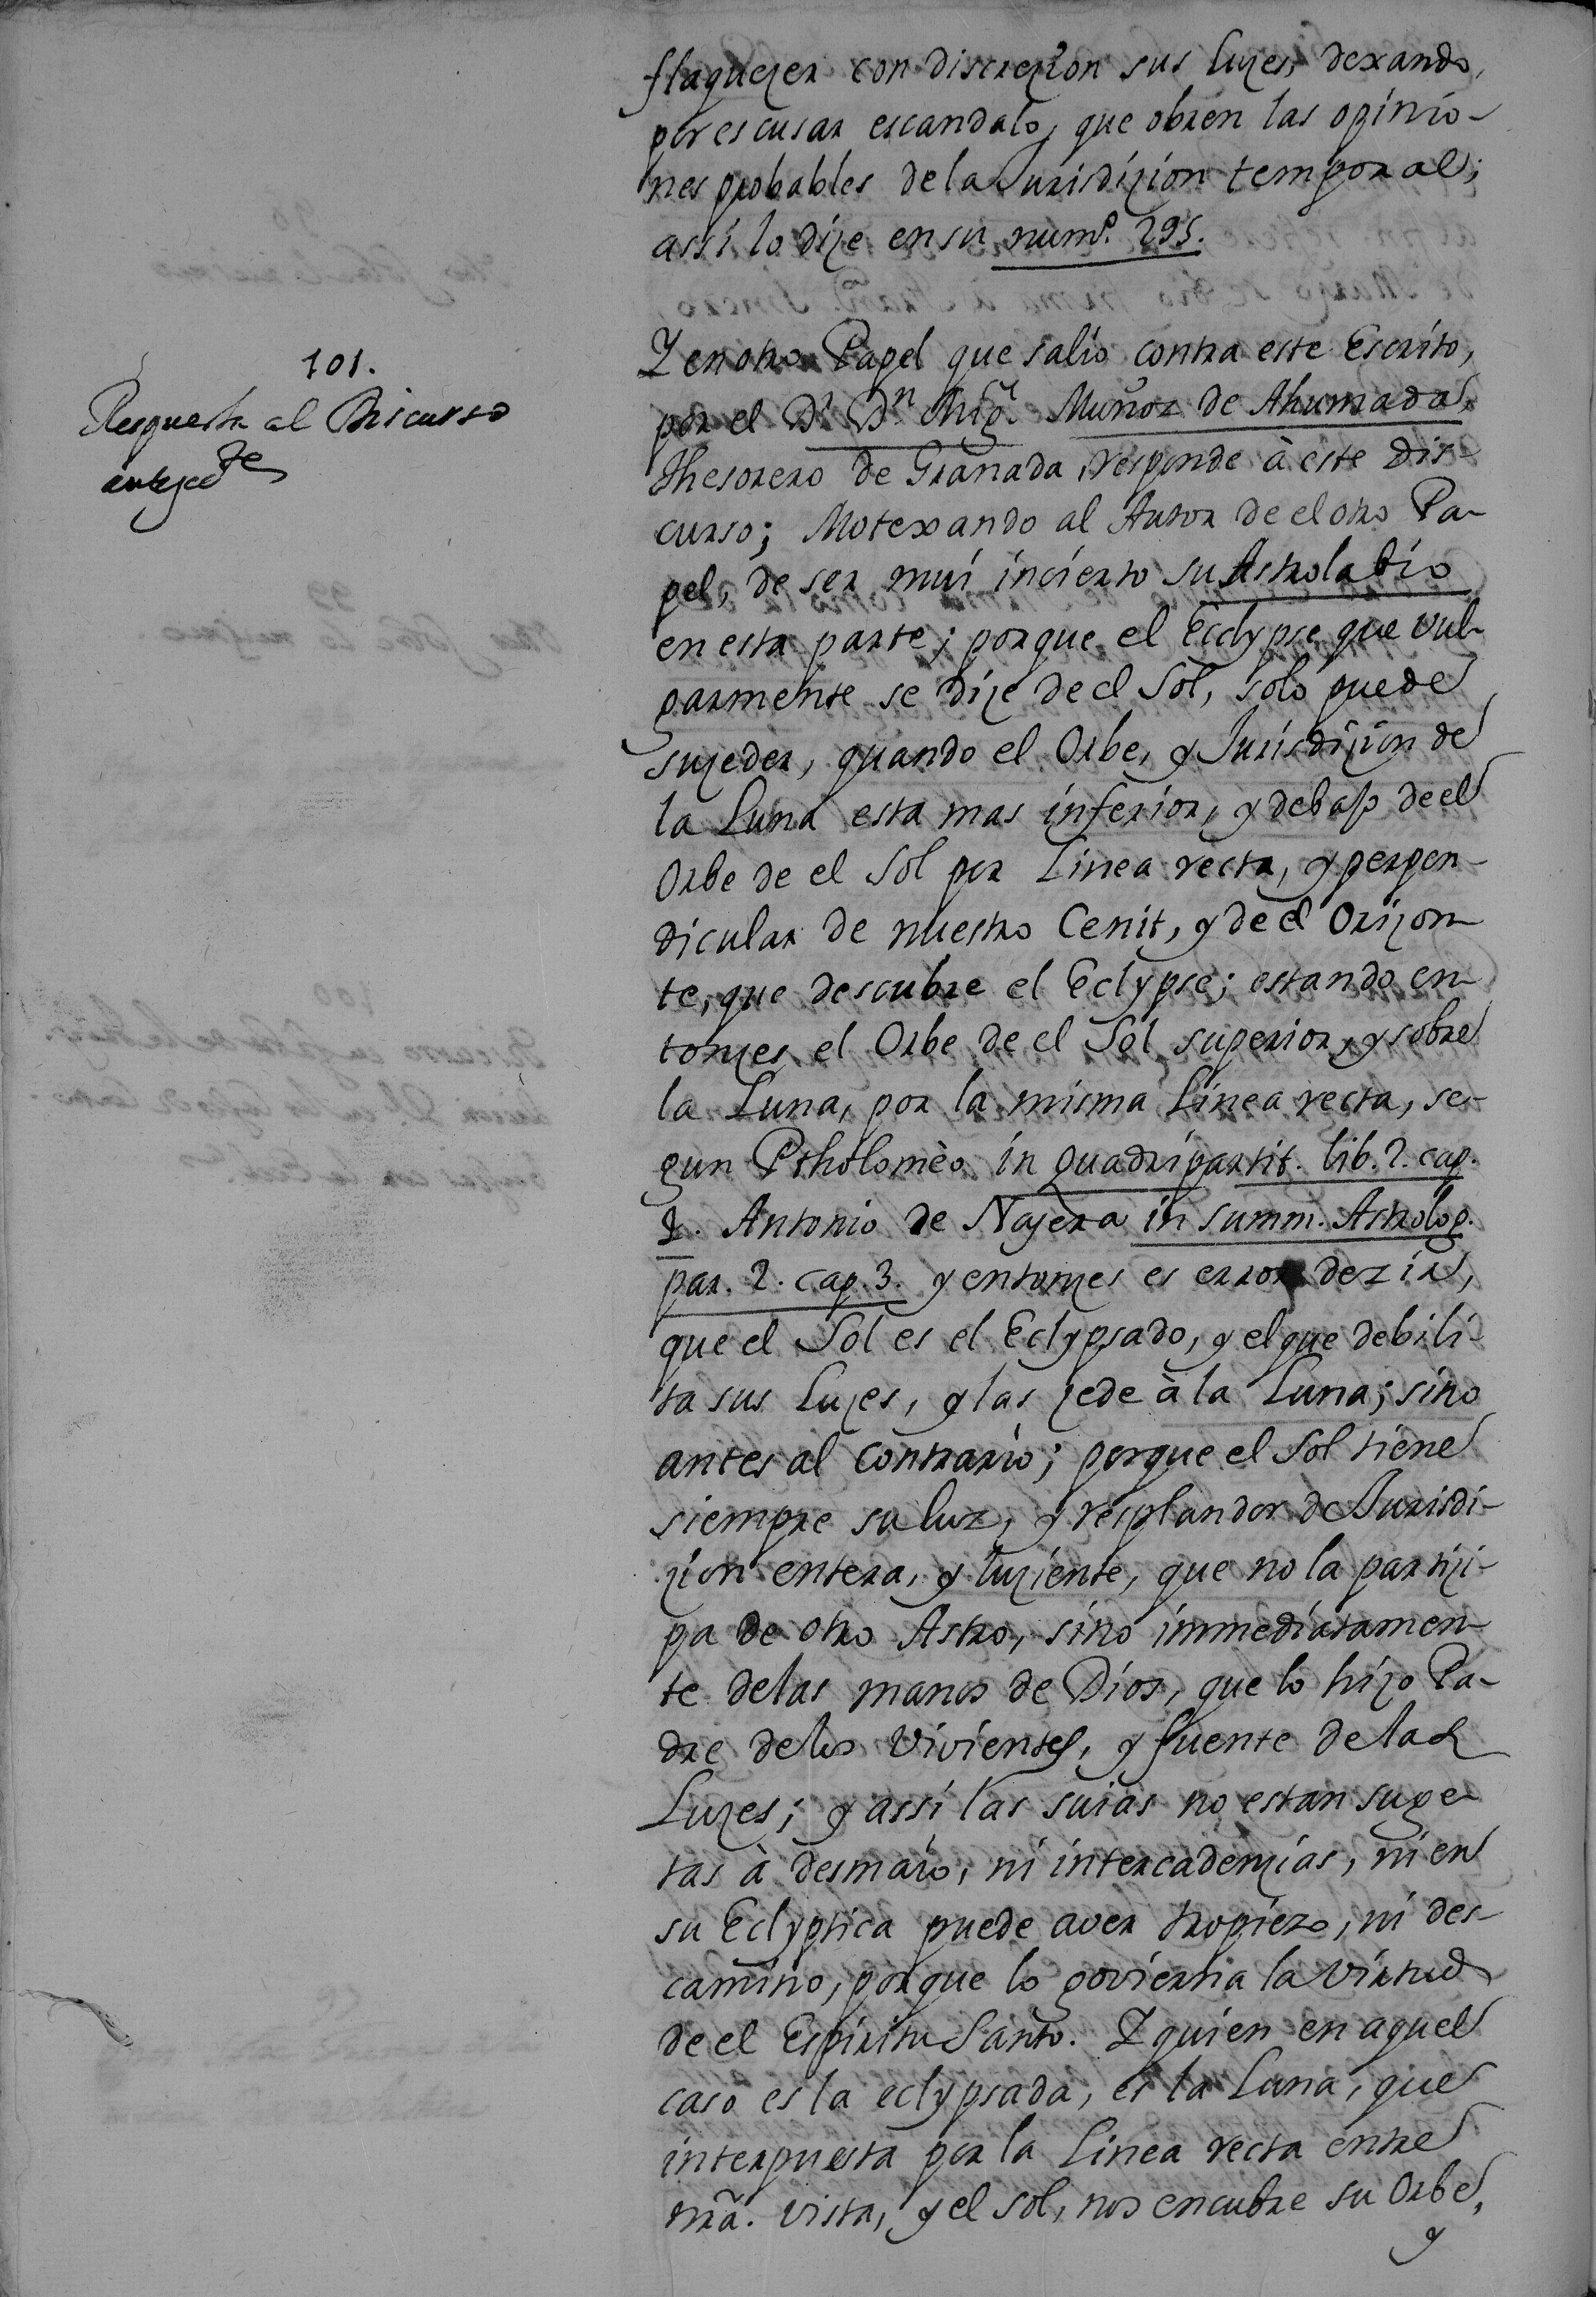 flaquezer con discrezion sus luzes, dexando,
por escusar escandalo, que obren las opinio-
nes probables de la Jurisdizion temporal;
assi lo dize en su num.º 295.
101.
Respuesta al Discurso
antezed.te
Y en otro Papel que salio contra este Escrito,
por el D.r D.n Mig.l Muñoz de Ahumada,
Thesorero de Granada, responde à este dis-
curso; Motexando al Autor de el otro Pa-
pel, de ser mui incierto su Astrolabio
en esta parte; porque el Ecclypse que vul-
garmente se dize de el Sol, solo puede
suzeder, quando el Orbe, y Jurisdizion de
la Luna esta mas inferior, y debajo de el
Orbe de el Sol por Linea recta, y perpen-
dicular de nuestro Cenit, y de el Orizon-
te, que descubre el Eclypse; estando en-
tonzes el Orbe de el Sol superior, y sobre
la Luna, por la misma Linea recta, se-
gun Ptholomèo in quadripartit. lib. 2. cap.
Antonio de Najera in summ. Astrolog.
par. 2. cap. 3. y entonzes es error dezir,
que el Sol es el Eclypsado, y el que debili-
ta sus Luzes, y las zede à la Luna; sino
antes al contrario; porque el Sol tiene
siempre su luz, y resplandor de Jurisdi-
zion entera, y luziente, que no la partizi-
pa de otro Astro, sino immediatamen-
te de las manos de Dios, que lo hizo Pa-
dre de los Vivientes, y fuente de las
Luzes; y assi las suias no estan suge-
tas à desmaio, ni intercadenzias, ni en
su Eclyptica puede aver tropiezo, ni des-
camino, porque lo govierna la virtud
de el Espiritu Santo. Y quien en aquel
caso es la eclypsada, es la Luna, que
interpuesta por la Linea recta entre
nrã. vista, y el sol, nos encubre su Orbe,
y